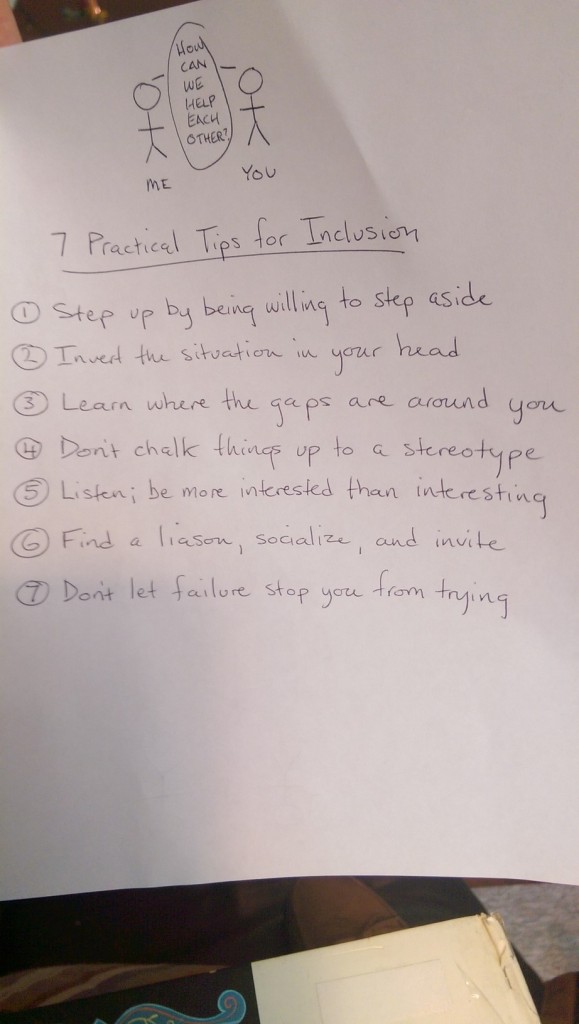 HOW
CAN
WE
HELP
EACH
OTHER?
ME
YOU
7 Practical Tips for Inclusion
1 Step up by being willing to step aside
2 Invert the situation in your head
3 Learn where the gaps are around you
4 Don't chalk things up to a stereotype
5 Listen; be more interested than interesting
6 Find a liason, socialize, and invite
7 Don't let failure stop you from trying